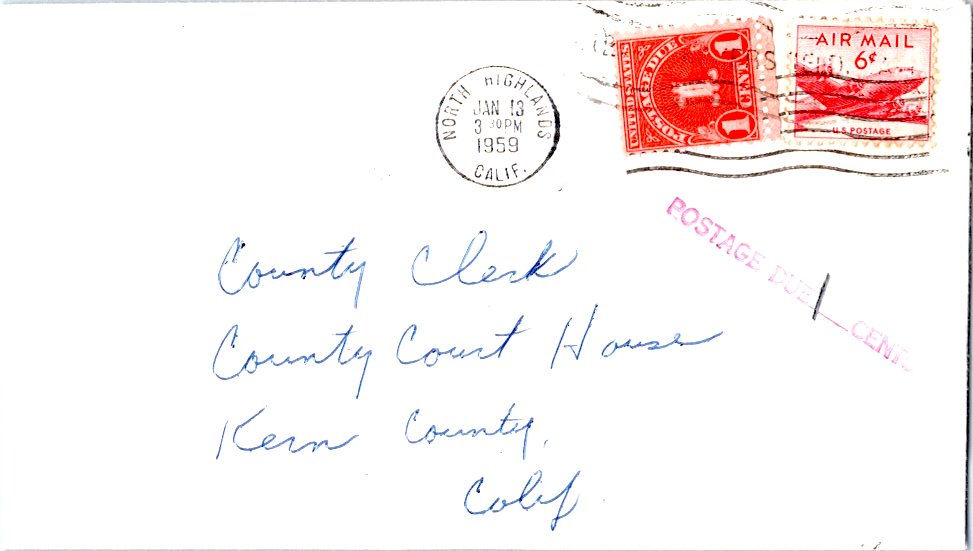 NORTH HIGHLANDS
JAN 13
3 30 PM
1959
CALIF.
UNITED STATES
POSTAGE DUE
1
1
1
AIR MAIL
6¢
U.S. POSTAGE
POSTAGE DUE 1 CENT.
County Clerk
County Court House
Kern County,
Calif